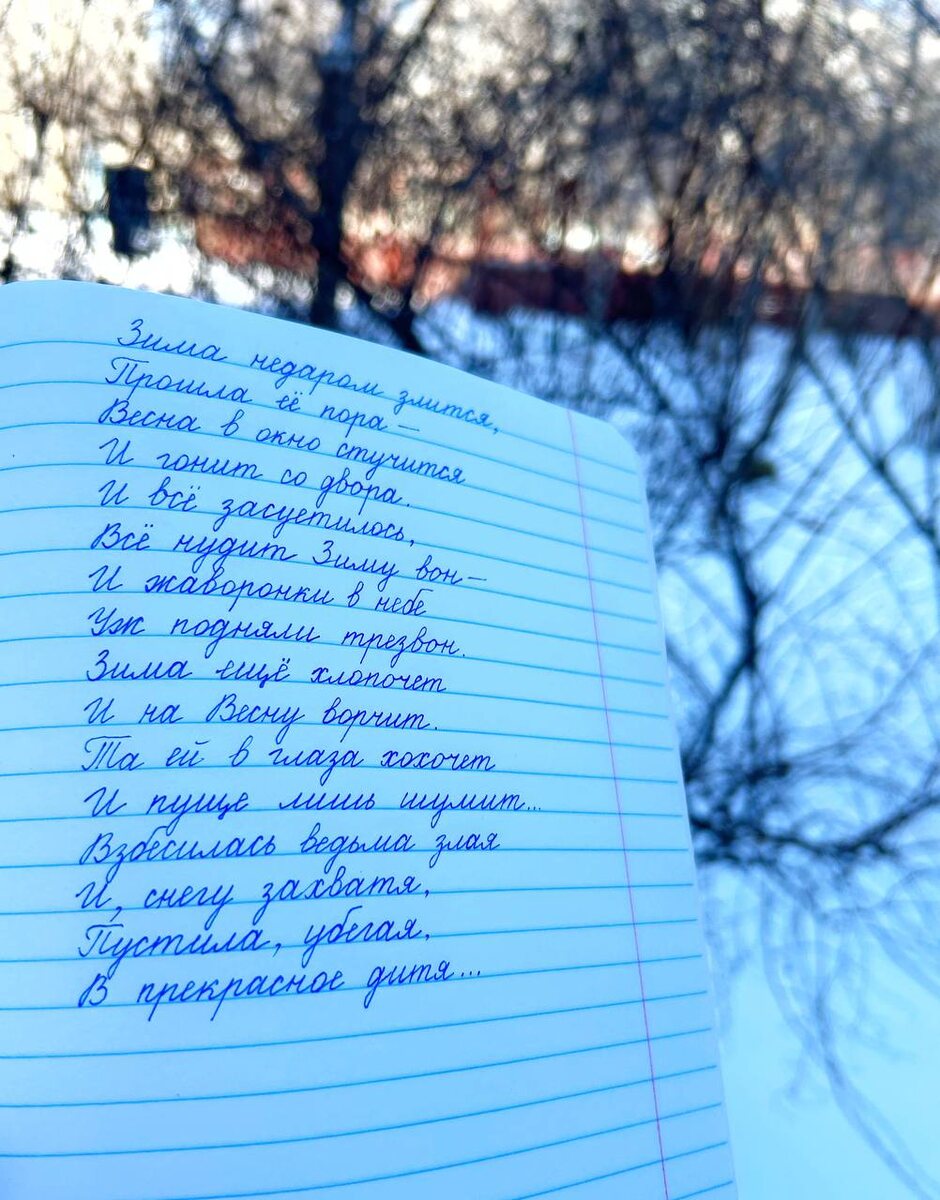 Зима недаром злится,
Прошла её пора –
Весна в окно стучится
И гонит со двора.
И всё засуетилось,
Всё нудит Зиму вон –
И жаворонки в небе
Уж подняли трезвон.
Зима ещё хлопочет
И на Весну ворчит.
Та ей в глаза хохочет
И пуще лишь шумит...
Взбесилась ведьма злая
И, снегу захватя,
Пустила, убегая,
В прекрасное дитя...